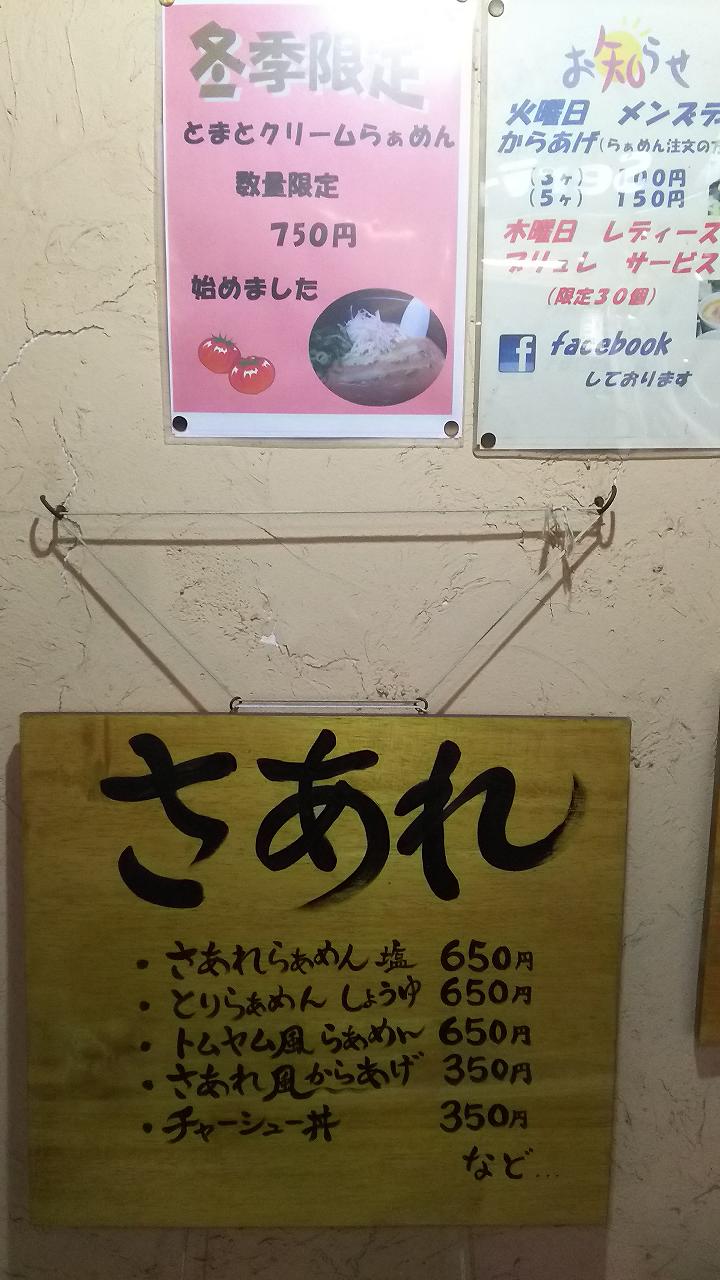 冬季限定
とまとクリームらぁめん
数量限定
750円
始めました
お知らせ
火曜日 メンズデ
からあげ(らぁめん注文の方
(3ヶ) 100円
(5ヶ) 150円
木曜日 レディース
ブリュレ サービス
(限定30個)
f facebook
しております
さあれ
・さあれらぁめん 塩 650円
・とりらぁめん しょうゆ 650円
・トムヤム風らぁめん 650円
・さあれ風からあげ 350円
・チャーシュー丼 350円
など…